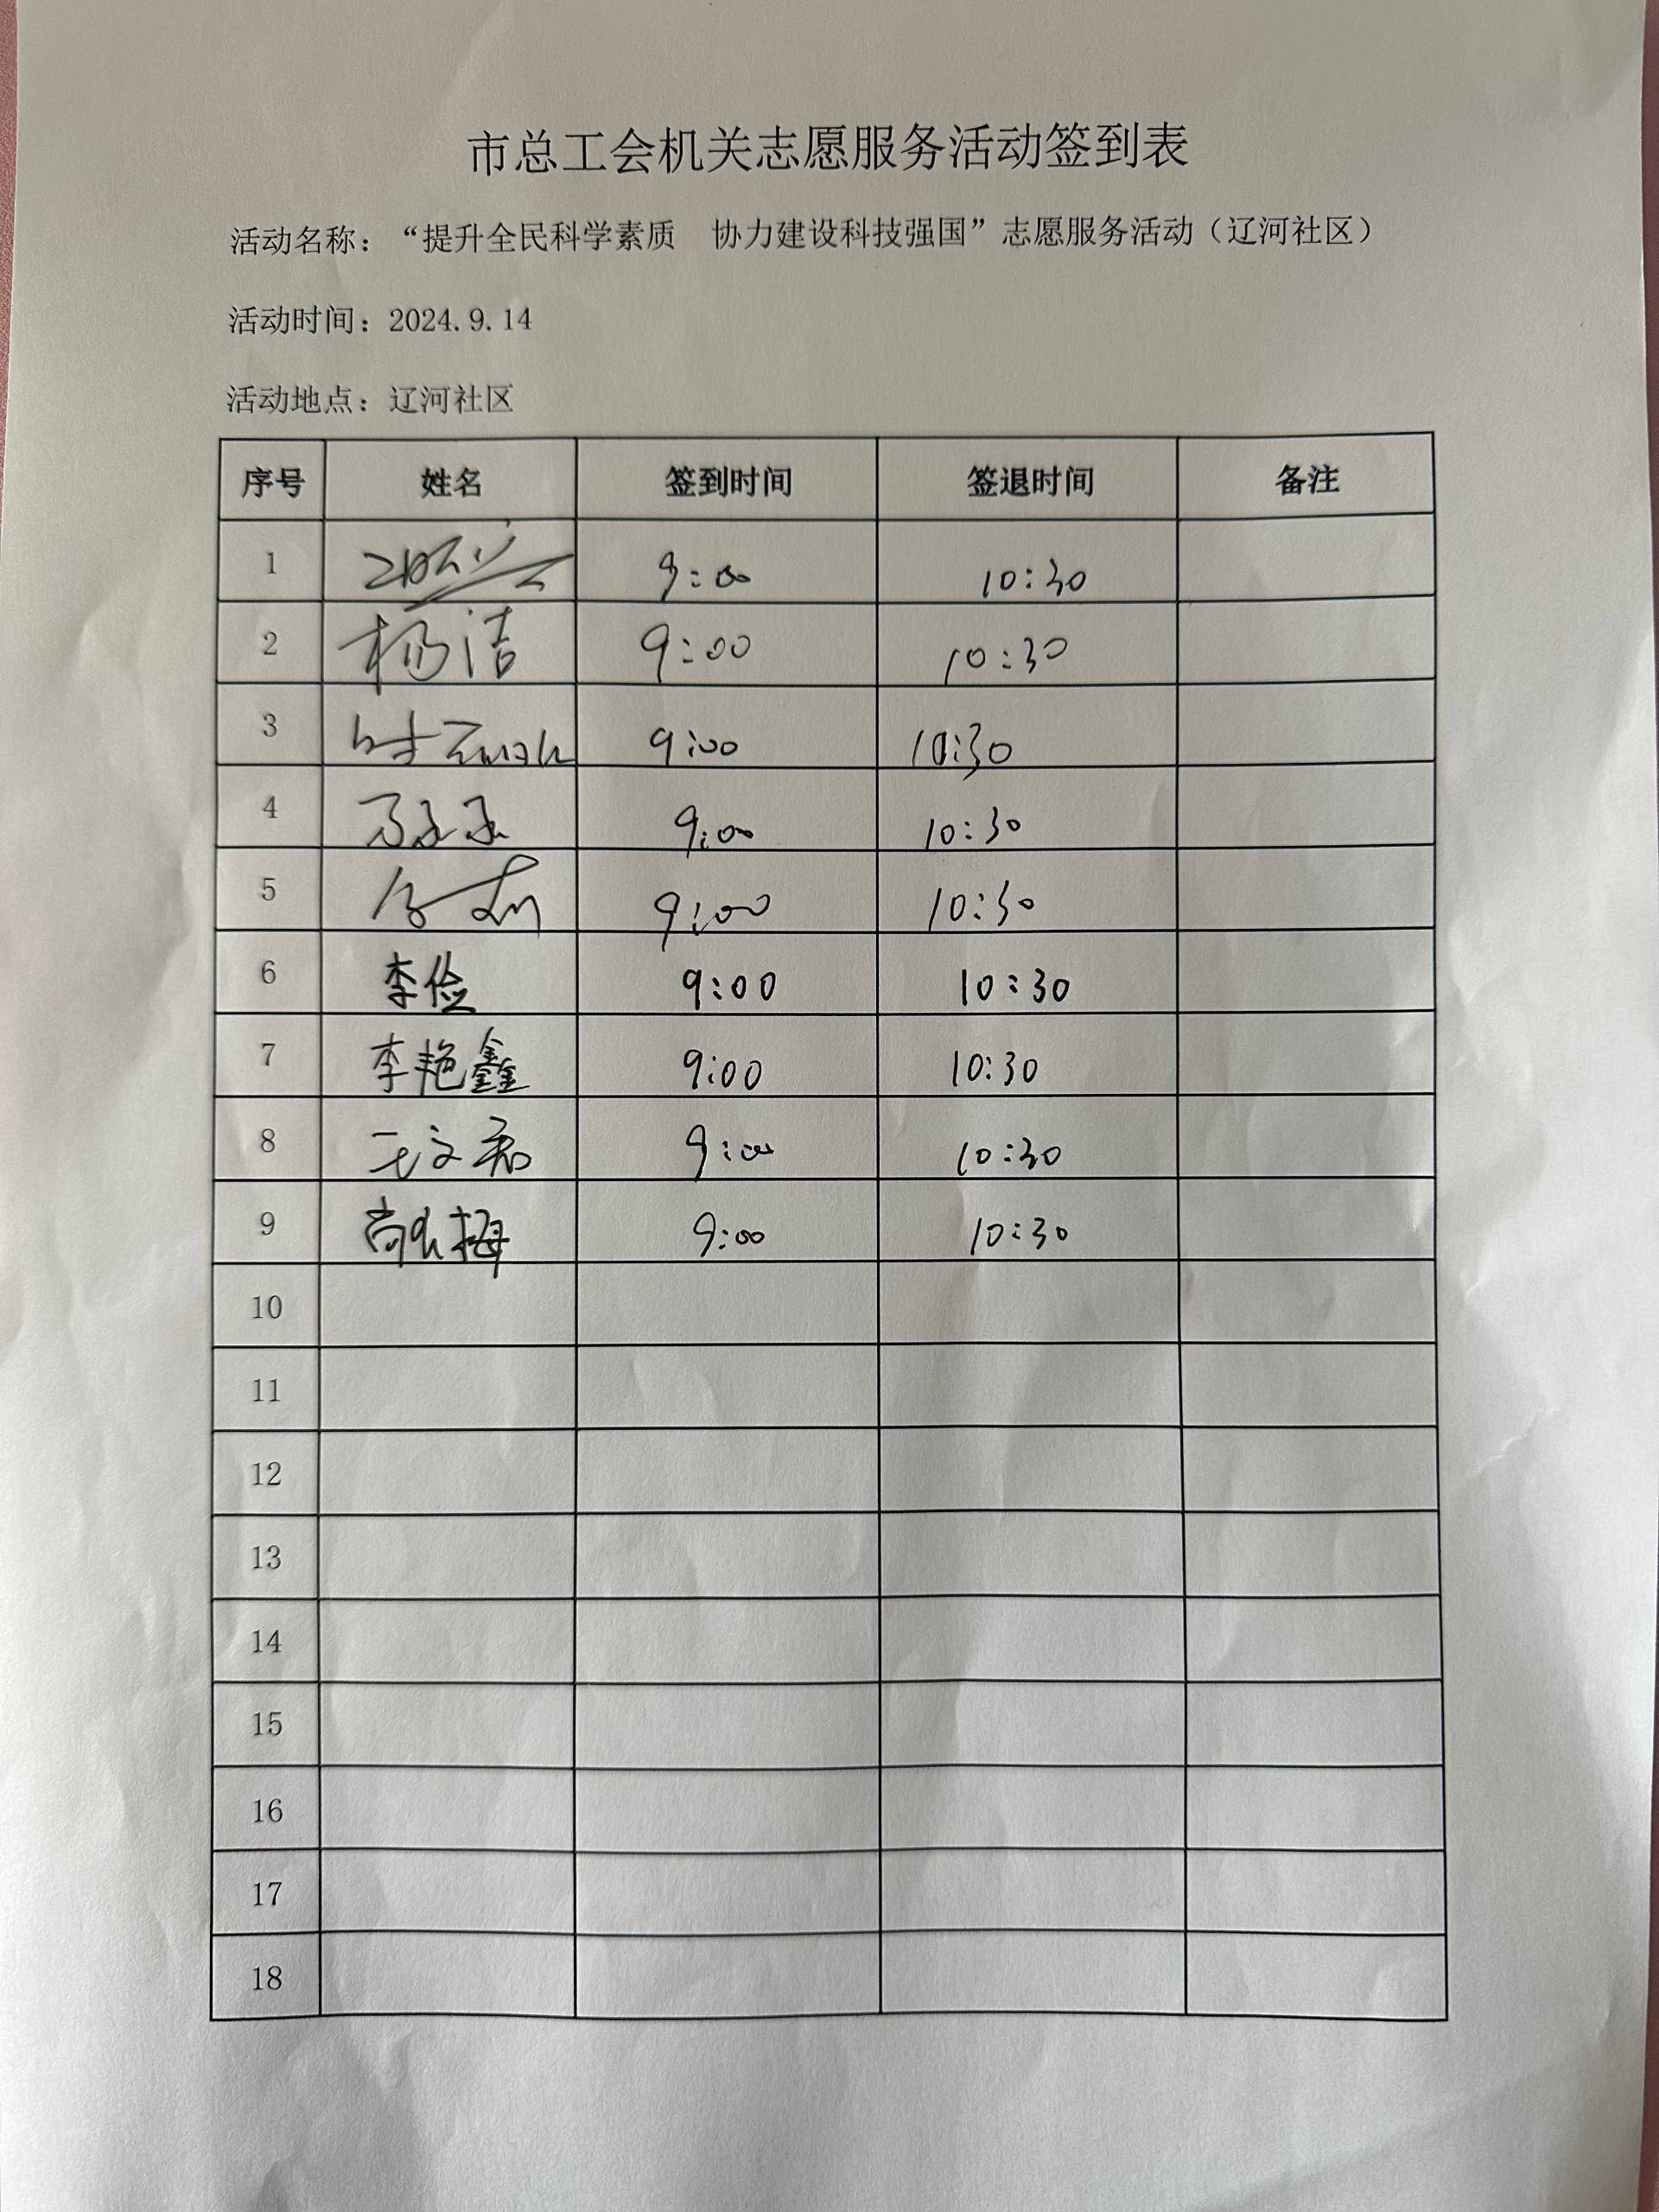 市总工会机关志愿服务活动签到表
活动名称：“提升全民科学素质 协力建设科技强国”志愿服务活动（辽河社区）
活动时间：2024.9.14
活动地点：辽河社区
序号 姓名 签到时间 签退时间 备注
1 9:00 10:30
2 杨洁 9:00 10:30
3 9:00 10:30
4 9:00 10:30
5 9:00 10:30
6 李俭 9:00 10:30
7 李艳鑫 9:00 10:30
8 王文君 9:00 10:30
9 9:00 10:30
10
11
12
13
14
15
16
17
18